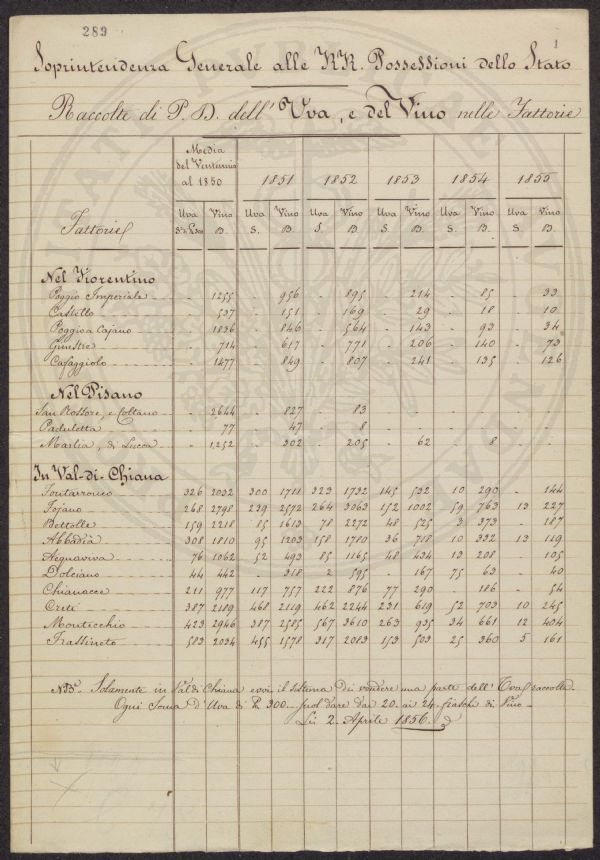 289
1
Soprintendenza Generale alle RR. Possessioni dello Stato
Raccolte di P. D. dell' Uva, e del Vino nelle Fattorie
Media
del Ventennio
al 1850 1851 1852 1853 1854 1855
Fattorie Uva Vino Uva Vino Uva Vino Uva Vino Uva Vino Uva Vino
B. S. B. S. B. S. B. S. B. S. B.
Nel Fiorentino
Poggio Imperiale - 1255 - 956 - 895 - 214 - 85 - 33
Castello - 537 - 151 - 169 - 29 - 18 - 10
Poggio a Cajano - 1836 - 846 - 564 - 143 - 93 - 34
Ginestre - 714 - 617 - 771 - 206 - 140 - 73
Cafaggiolo - 1477 - 849 - 807 - 241 - 135 - 126
Nel Pisano
San Rossore, e Coltano - 2644 - 827 - 83 - - - - - -
Paduletta - 77 - 47 - 8 - - - - - -
Marlia, di Lucca - 1,252 - 302 - 205 - 62 - 8 - -
In Val-di-Chiana
Fontarronco 326 2032 300 1711 323 1732 145 532 10 290 - 144
Fojano 268 2798 239 2572 264 3063 152 1002 59 763 13 227
Bettolle 159 2218 85 1613 78 2272 48 525 3 373 - 187
Abbadia 308 1810 95 1203 158 1780 36 718 10 332 13 119
Acquaviva 76 1062 52 493 85 1165 48 434 13 208 - 105
Dolciano 44 442 - 318 2 595 - 167 75 63 - 40
Chianacce 211 977 117 757 222 876 77 290 - 186 - 54
Creti 387 2189 468 2119 462 2244 231 619 52 703 10 245
Montecchio 423 2946 387 2585 567 3610 263 935 34 661 12 404
Frassineto 583 2034 455 1578 317 2083 153 503 25 360 5 161
NB. Solamente in Val di Chiana evvi il sistema di vendere una parte dell' Uva raccolta.
Ogni Soma d'Uva di 300 - suol dare dai 20. ai 24. fiaschi di Vino -
Li 2. Aprile 1856.